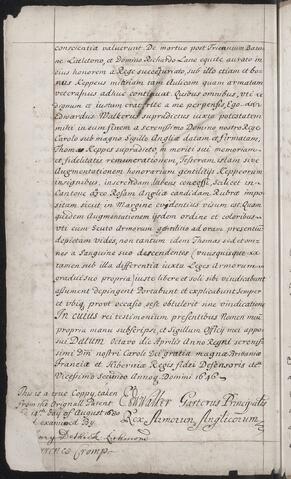 conspicatia valuerunt. De mortuo post Triennium Baro=
ne Littletono, et Domino Richardo Lane equite aurato in
eius honorem a Rege successurato, sub illo etiam et bo=
nus Keppeus militiam tam Aulicam quam armatam
veteranus adhuc continuat Quibus omnibus, uti re
dignum et iustum erat rite a me perpensis, Ego
Edwardus Walkerus supradictus iuxta potestatem
mihi in eum finem a Serenissimo Domino nostro Rege
Carolo sub magno Sigillo Angliæ datam et firmatam,
Thomas Keppes supradicto in meriti sui memoriam
et fidelitatis remunerationem, Tesseram istam sive
Augmentationem honorariam gentilitijs Keppeorum
insignibus, inserendam lubens concessi, Scilicet in
Cantone Aureo Rosam Angliæ candidam, Rubro impo=
sitam sicut in Margine evidentius visum est. Quan
quidem Augmentationem ijsdem ordine et coloribus
uti cum Scuto Armorum gentilitio ad oram præsentium
depictam vides, non tantum idem Thomas sed et om=
nes a Sanguine suo descendentes (unusquisque
tamen sub illa differentia iuxta Leges Armorum
era) sui propria iuste libere et soli sibi vindicabunt
assument depingent portabunt et explicabunt semper
et ubiq prout occasio sese obtulerit sine vindicatione
In cuius rei testimonium præsentibus Nomen meum
propria manu subscripsi, et Sigillum Officij mei appo=
sui Datum octavo die Aprilis Anno Regni Serenis=
simi Dni nostri Caroli Dei gratia magnæ Britanniæ
Franciæ et Hiberniæ Regis fidei Defensoris etc
Vicesimo Secundo Annoq Domini 1646
This is a true Coppy taken
from the Originall Patent
14th day of August 1680
Examined By
Ed Walker Garterus Principalis
Rex Armorum Anglicorum